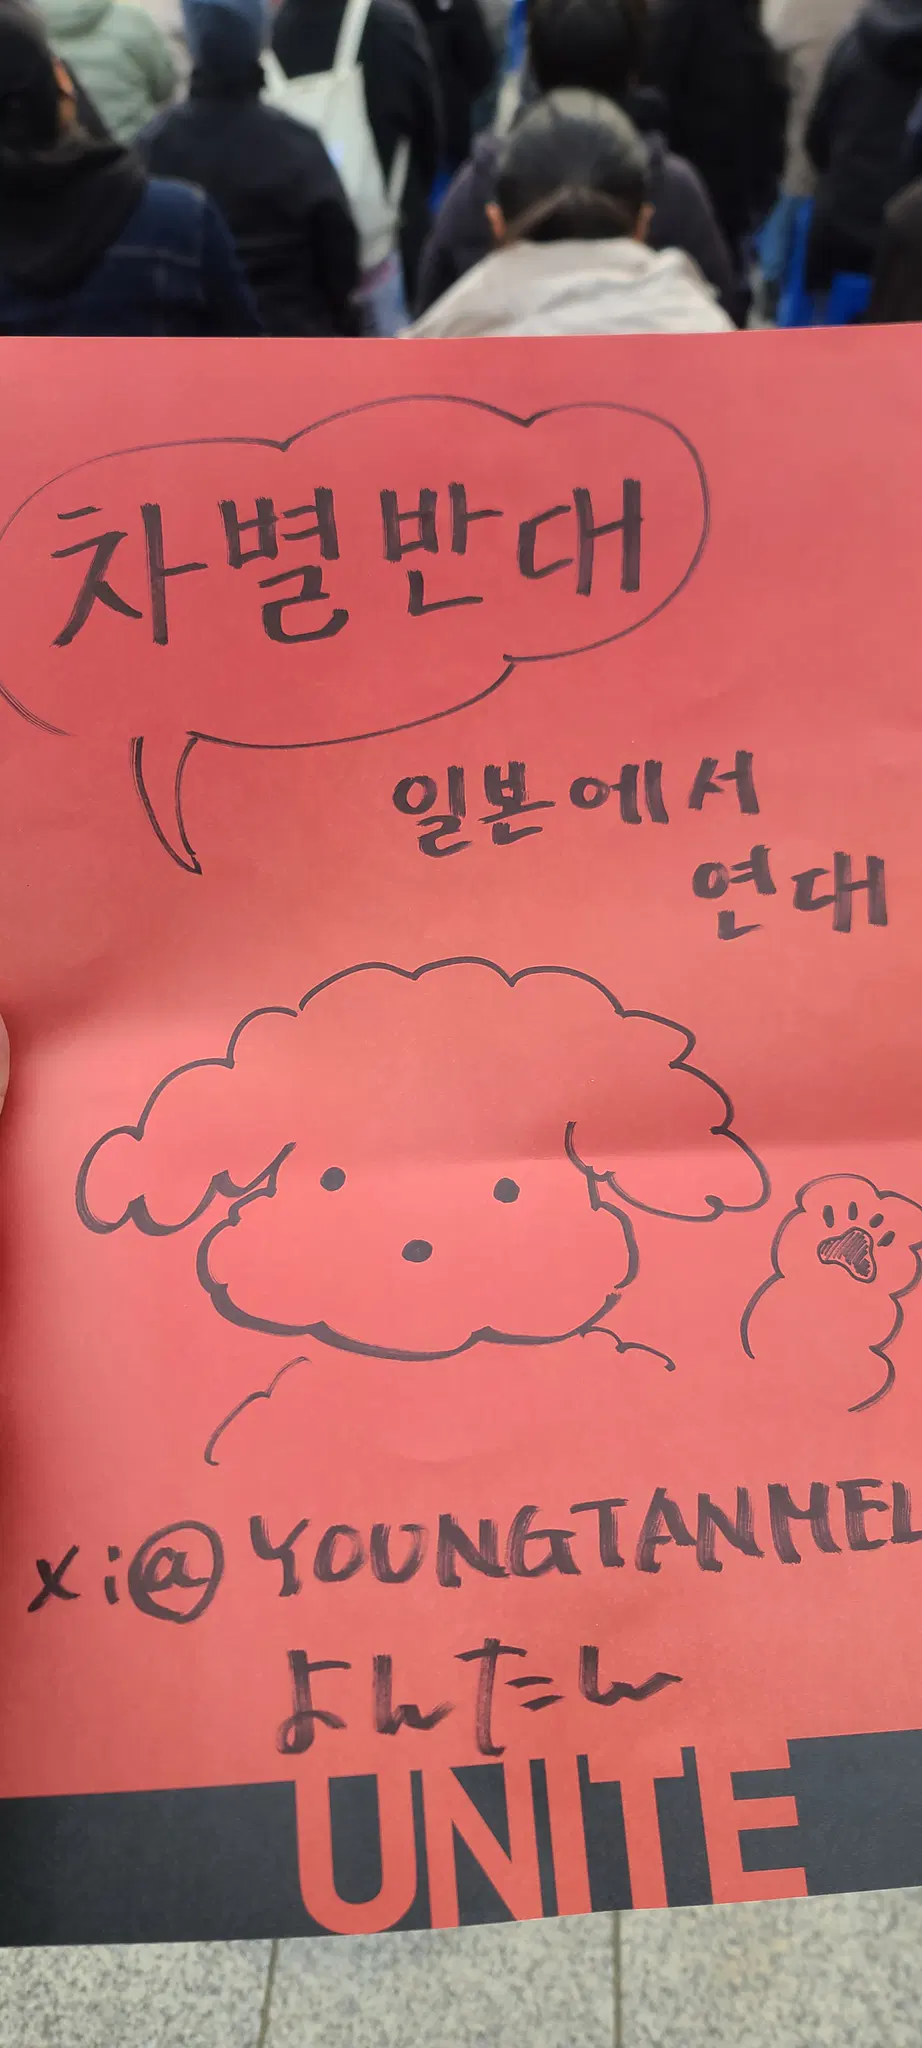 차별반대
일본에서
연대
X i@YOUNGTANMEL
よんたん
UNITE